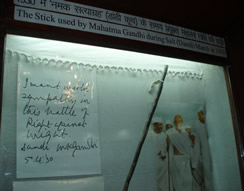 1930 में नमक सत्याग्रह (दांडी कूच) के समय प्रयुक्त महात्मा गांधी
The Stick used by Mahatma Gandhi during Salt (Dandi) March
I want world
sympathy in
this battle of
Right against
might
Dandi MKGandhi
5.4.30